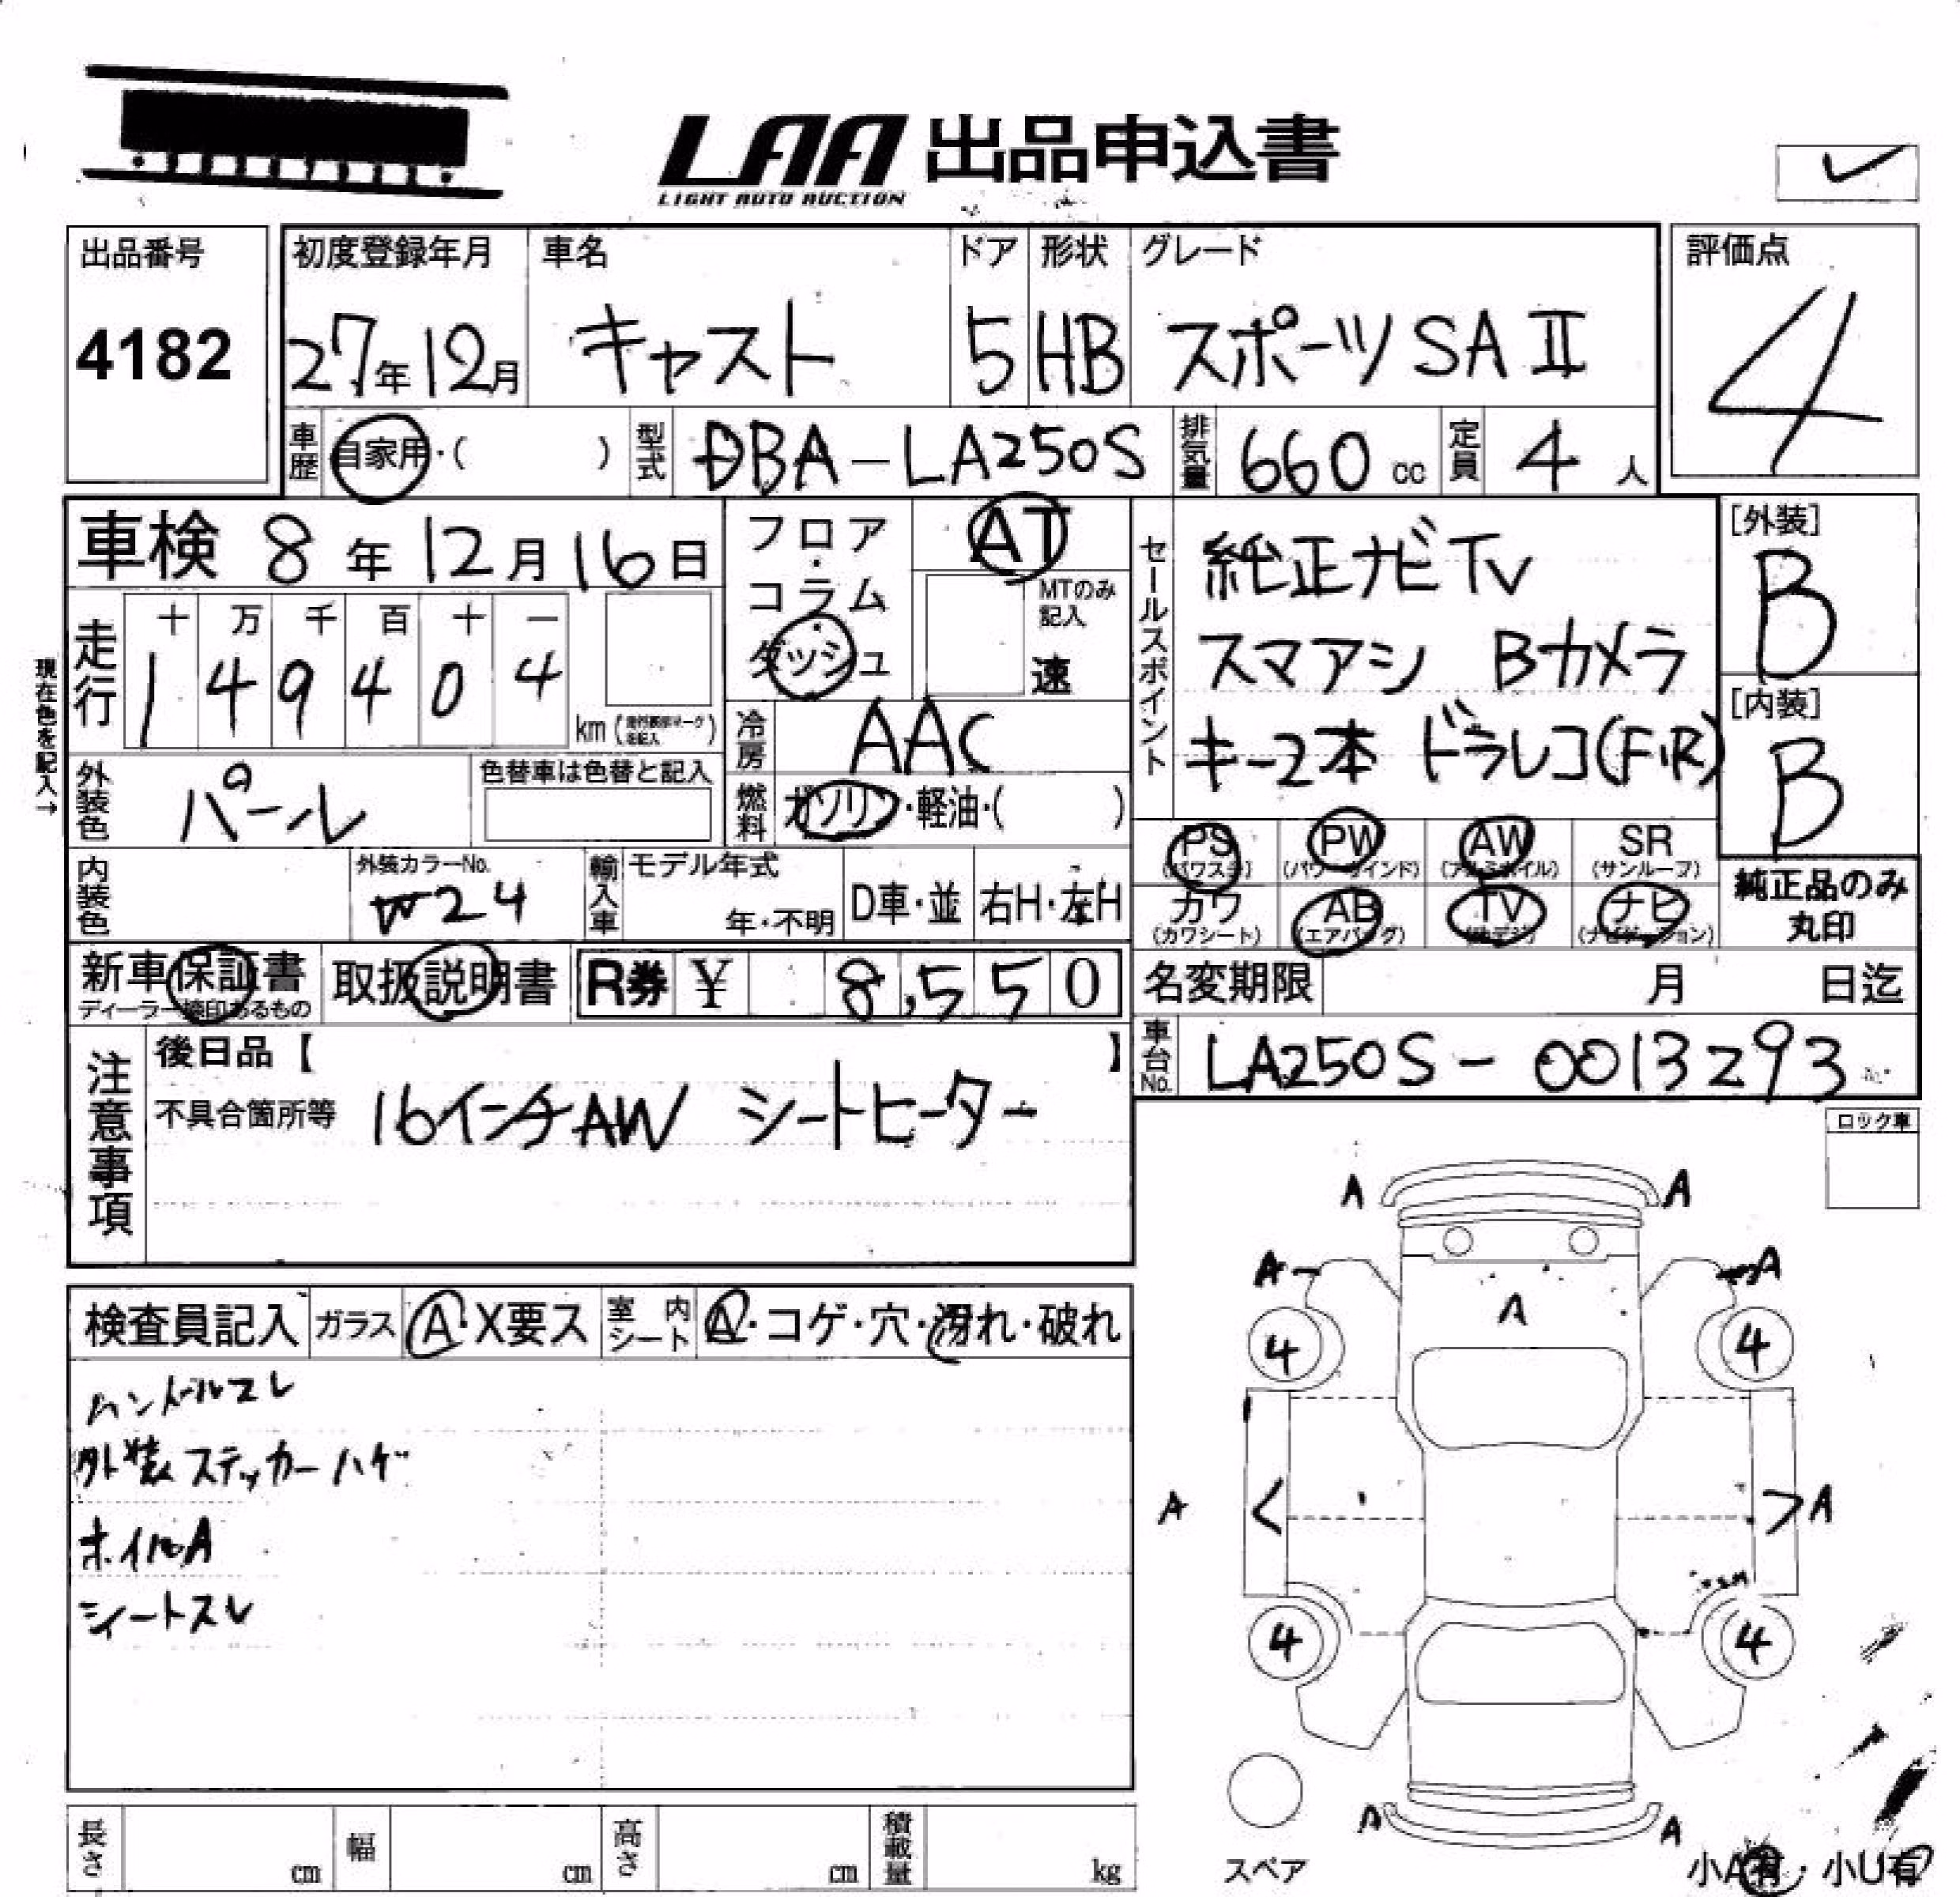 LAA 出品申込書
LIGHT AUTO AUCTION
出品番号
4182
初度登録年月
27年12月
車名
キャスト
ドア
5
形状
HB
グレード
スポーツSAⅡ
評価点
4
車歴 自家用・( )
型式 DBA-LA250S
排気量 660 cc
定員 4 人
車検 8年12月16日
フロア・コラム・ダッシュ
AT
MTのみ記入
速
セールスポイント
純正ナビTV
スマアシ Bカメラ
キー2本 ドラレコ(F.R)
[外装]
B
[内装]
B
現在色を記入→
走行
十 万 千 百 十 一
1 4 9 4 0 4
km
冷房 AAC
外装色 パール
色替車は色替と記入
燃料 ガソリン・軽油・( )
PS (パワステ)
PW (パワーウインド)
AW (アルミホイル)
SR (サンルーフ)
カワ (カワシート)
AB (エアバッグ)
TV (地デジ)
ナビ (ナビゲーション)
純正品のみ
丸印
内装色
外装カラーNo.
W24
輸入車
モデル年式
年・不明
D車・並
右H・左H
新車保証書
ディーラー捺印あるもの
取扱説明書
R券 ¥ 8,550
名変期限 月 日迄
車台No. LA250S-0013293
注意事項
後日品【 】
不具合箇所等 16インチAW シートヒーター
ロック車
検査員記入
ガラス A・X要ス
室内シート A・コゲ・穴・汚れ・破れ
ハンドルスレ
外装ステッカーハゲ
ホイルA
シートスレ
A A
A A
A
4 4
A A
4 4
A A
スペア
小A有・小U有
長さ cm
幅 cm
高さ cm
積載量 kg